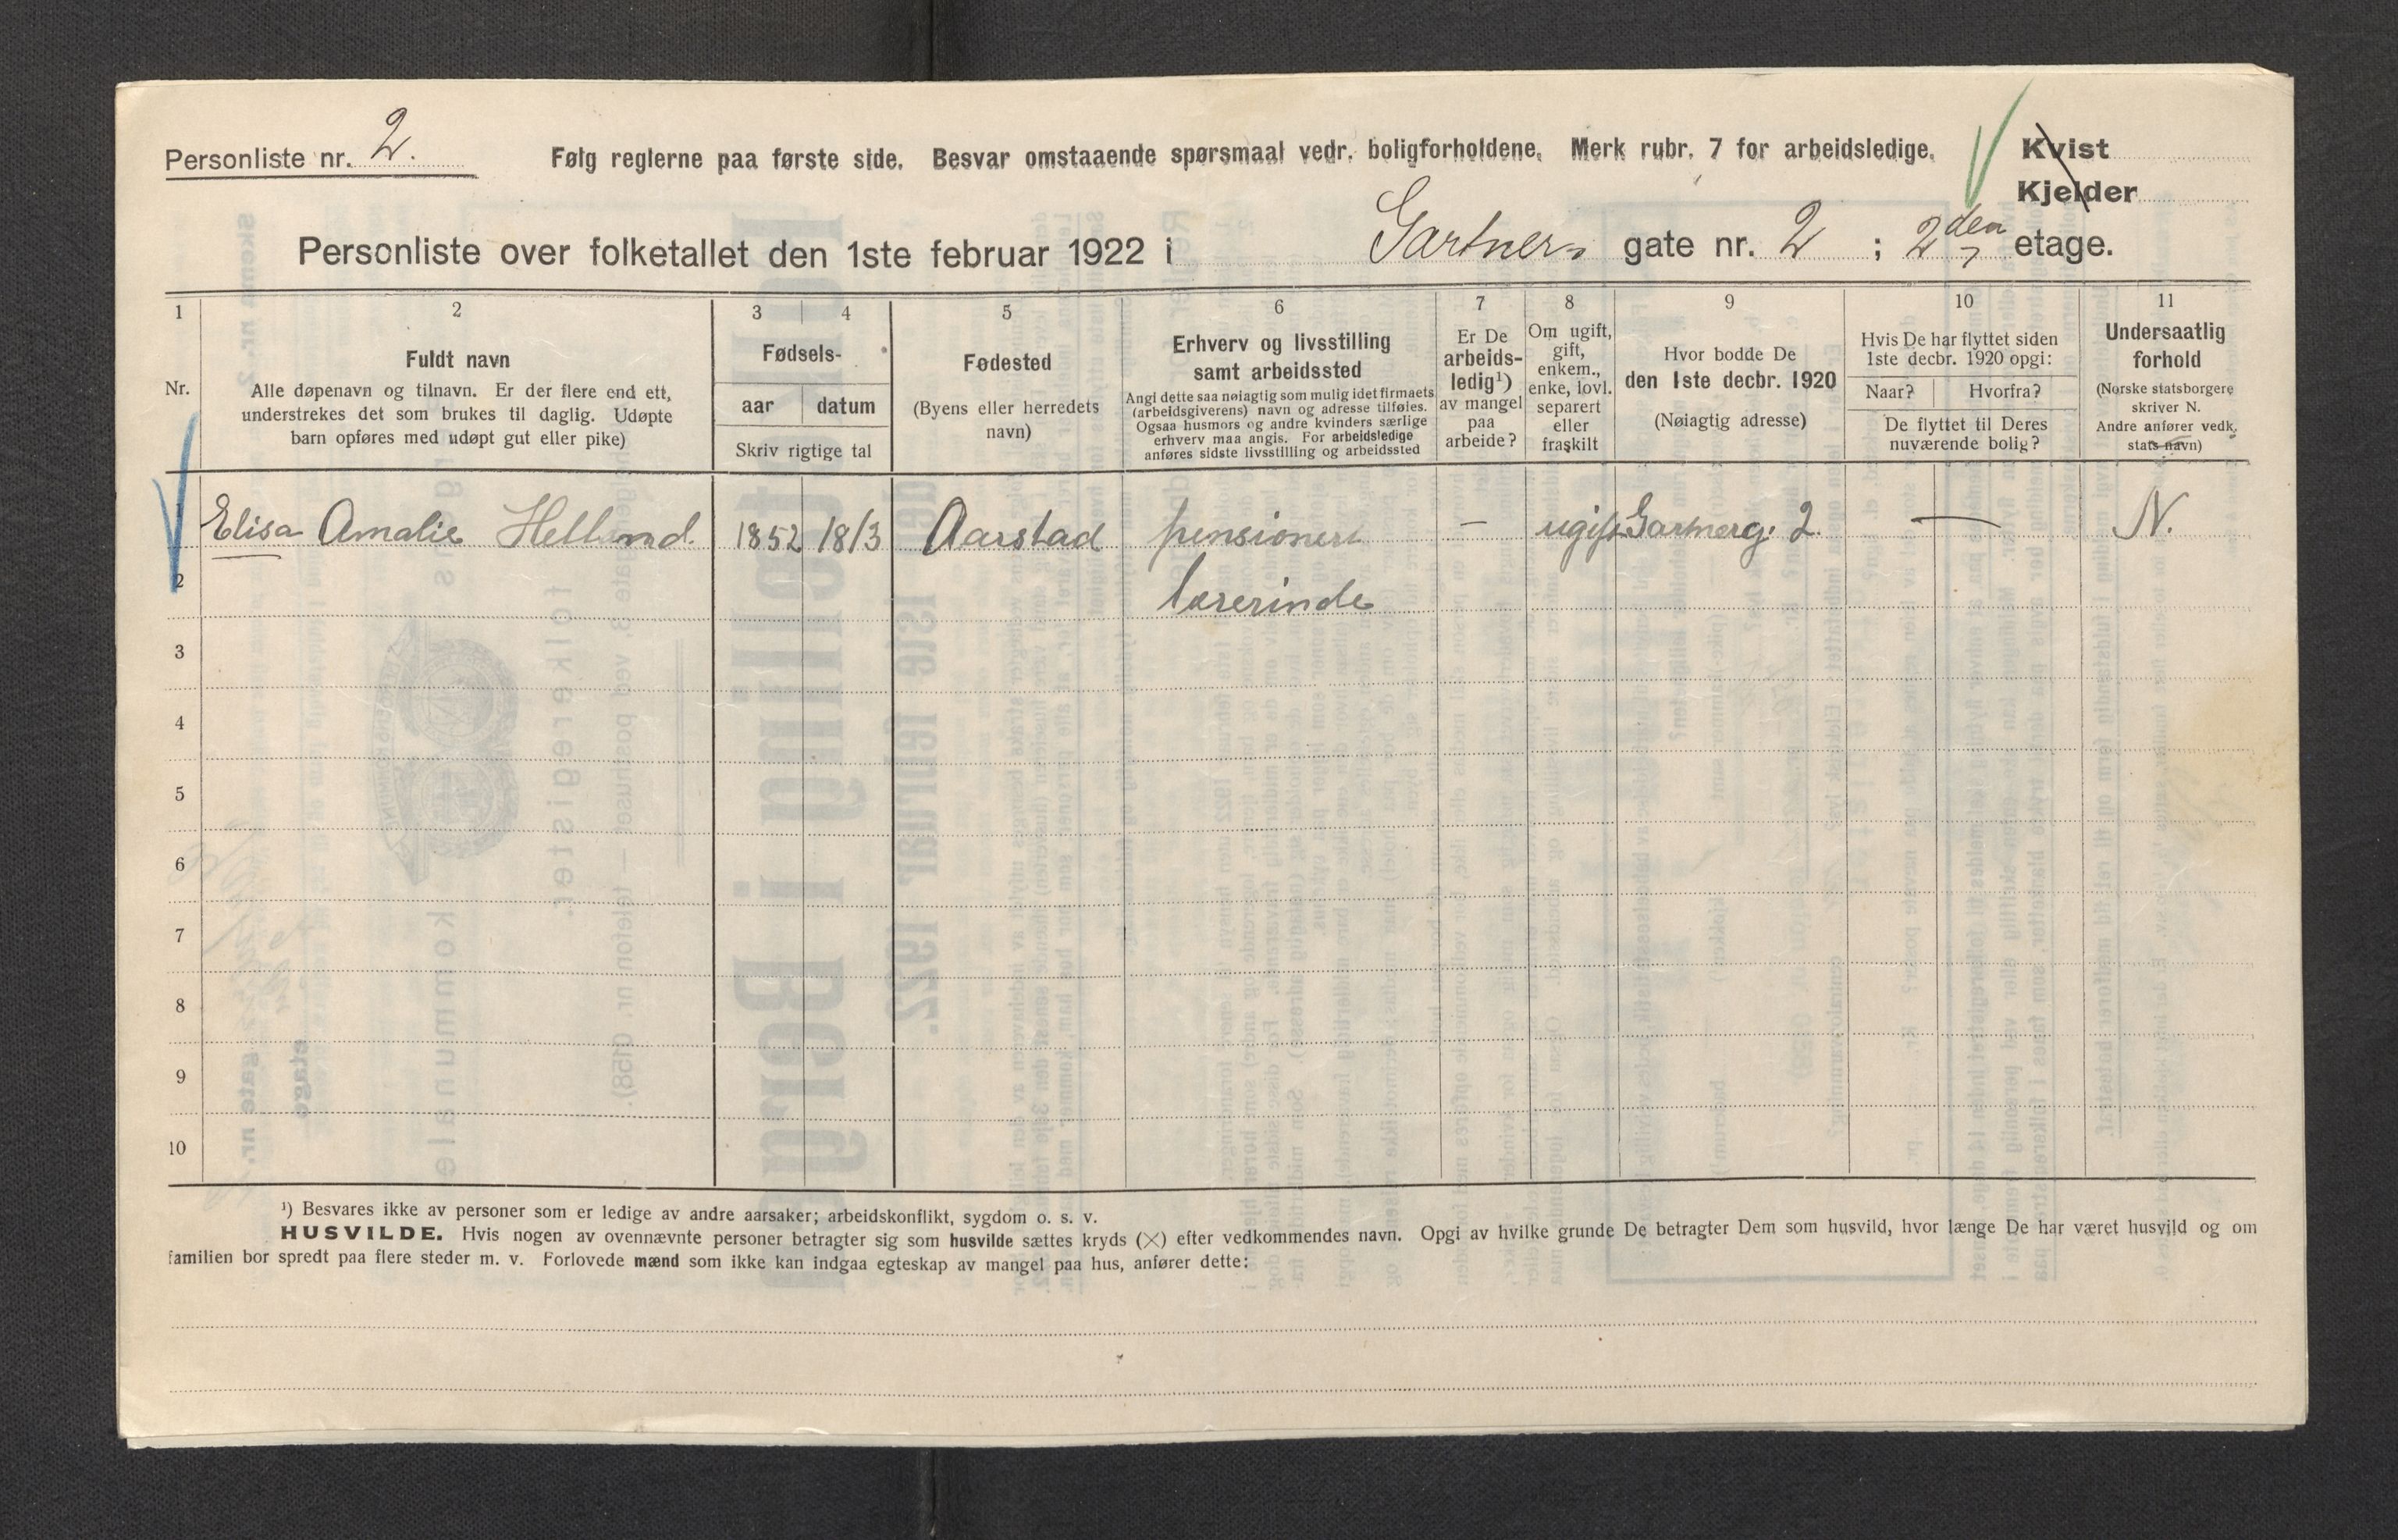 Personliste nr. 2.
Følg reglerne paa første side. Besvar omstaaende spørsmaal vedr. boligforholdene. Merk rubr. 7 for arbeidsledige.
Kvist
Kjelder
Personliste over folketallet den 1ste februar 1922 i Gartner gate nr. 2 ; 2den etage.
1 2 3 4 5 6 7 8 9 10 11
Nr.
Fuldt navn
Alle døpenavn og tilnavn. Er der flere end ett,
understrekes det som brukes til daglig. Udøpte
barn opføres med udøpt gut eller pike)
Fødsels-
aar datum
Skriv rigtige tal
Fødested
(Byens eller herredets
navn)
Erhverv og livsstilling
samt arbeidssted
Angi dette saa nøiagtig som mulig idet firmaets
(arbeidsgiverens) navn og adresse tilføies.
Ogsaa husmors og andre kvinders særlige
erhverv maa angis. For arbeidsledige
anføres sidste livsstilling og arbeidssted
Er De
arbeids-
ledig¹)
av mangel
paa
arbeide?
Om ugift,
gift,
enkem.,
enke, lovl.
separert
eller
fraskilt
Hvor bodde De
den 1ste decbr. 1920
(Nøiagtig adresse)
Hvis De har flyttet siden
1ste decbr. 1920 opgi:
Naar? Hvorfra?
De flyttet til Deres
nuværende bolig?
Undersaatlig
forhold
(Norske statsborgere
skriver N.
Andre anfører vedk.
stats navn)
1 Elisa Amalie Helland. 1852 18/3 Aarstad pensionert — ugift Gartnerg. 2. — N.
2 lærerinde
3
4
5
6
7
8
9
10
¹) Besvares ikke av personer som er ledige av andre aarsaker; arbeidskonflikt, sygdom o. s. v.
HUSVILDE. Hvis nogen av ovennævnte personer betragter sig som husvilde sættes kryds (×) efter vedkommendes navn. Opgi av hvilke grunde De betragter Dem som husvild, hvor længe De har været husvild og om
familien bor spredt paa flere steder m. v. Forlovede mænd som ikke kan indgaa egteskap av mangel paa hus, anfører dette: